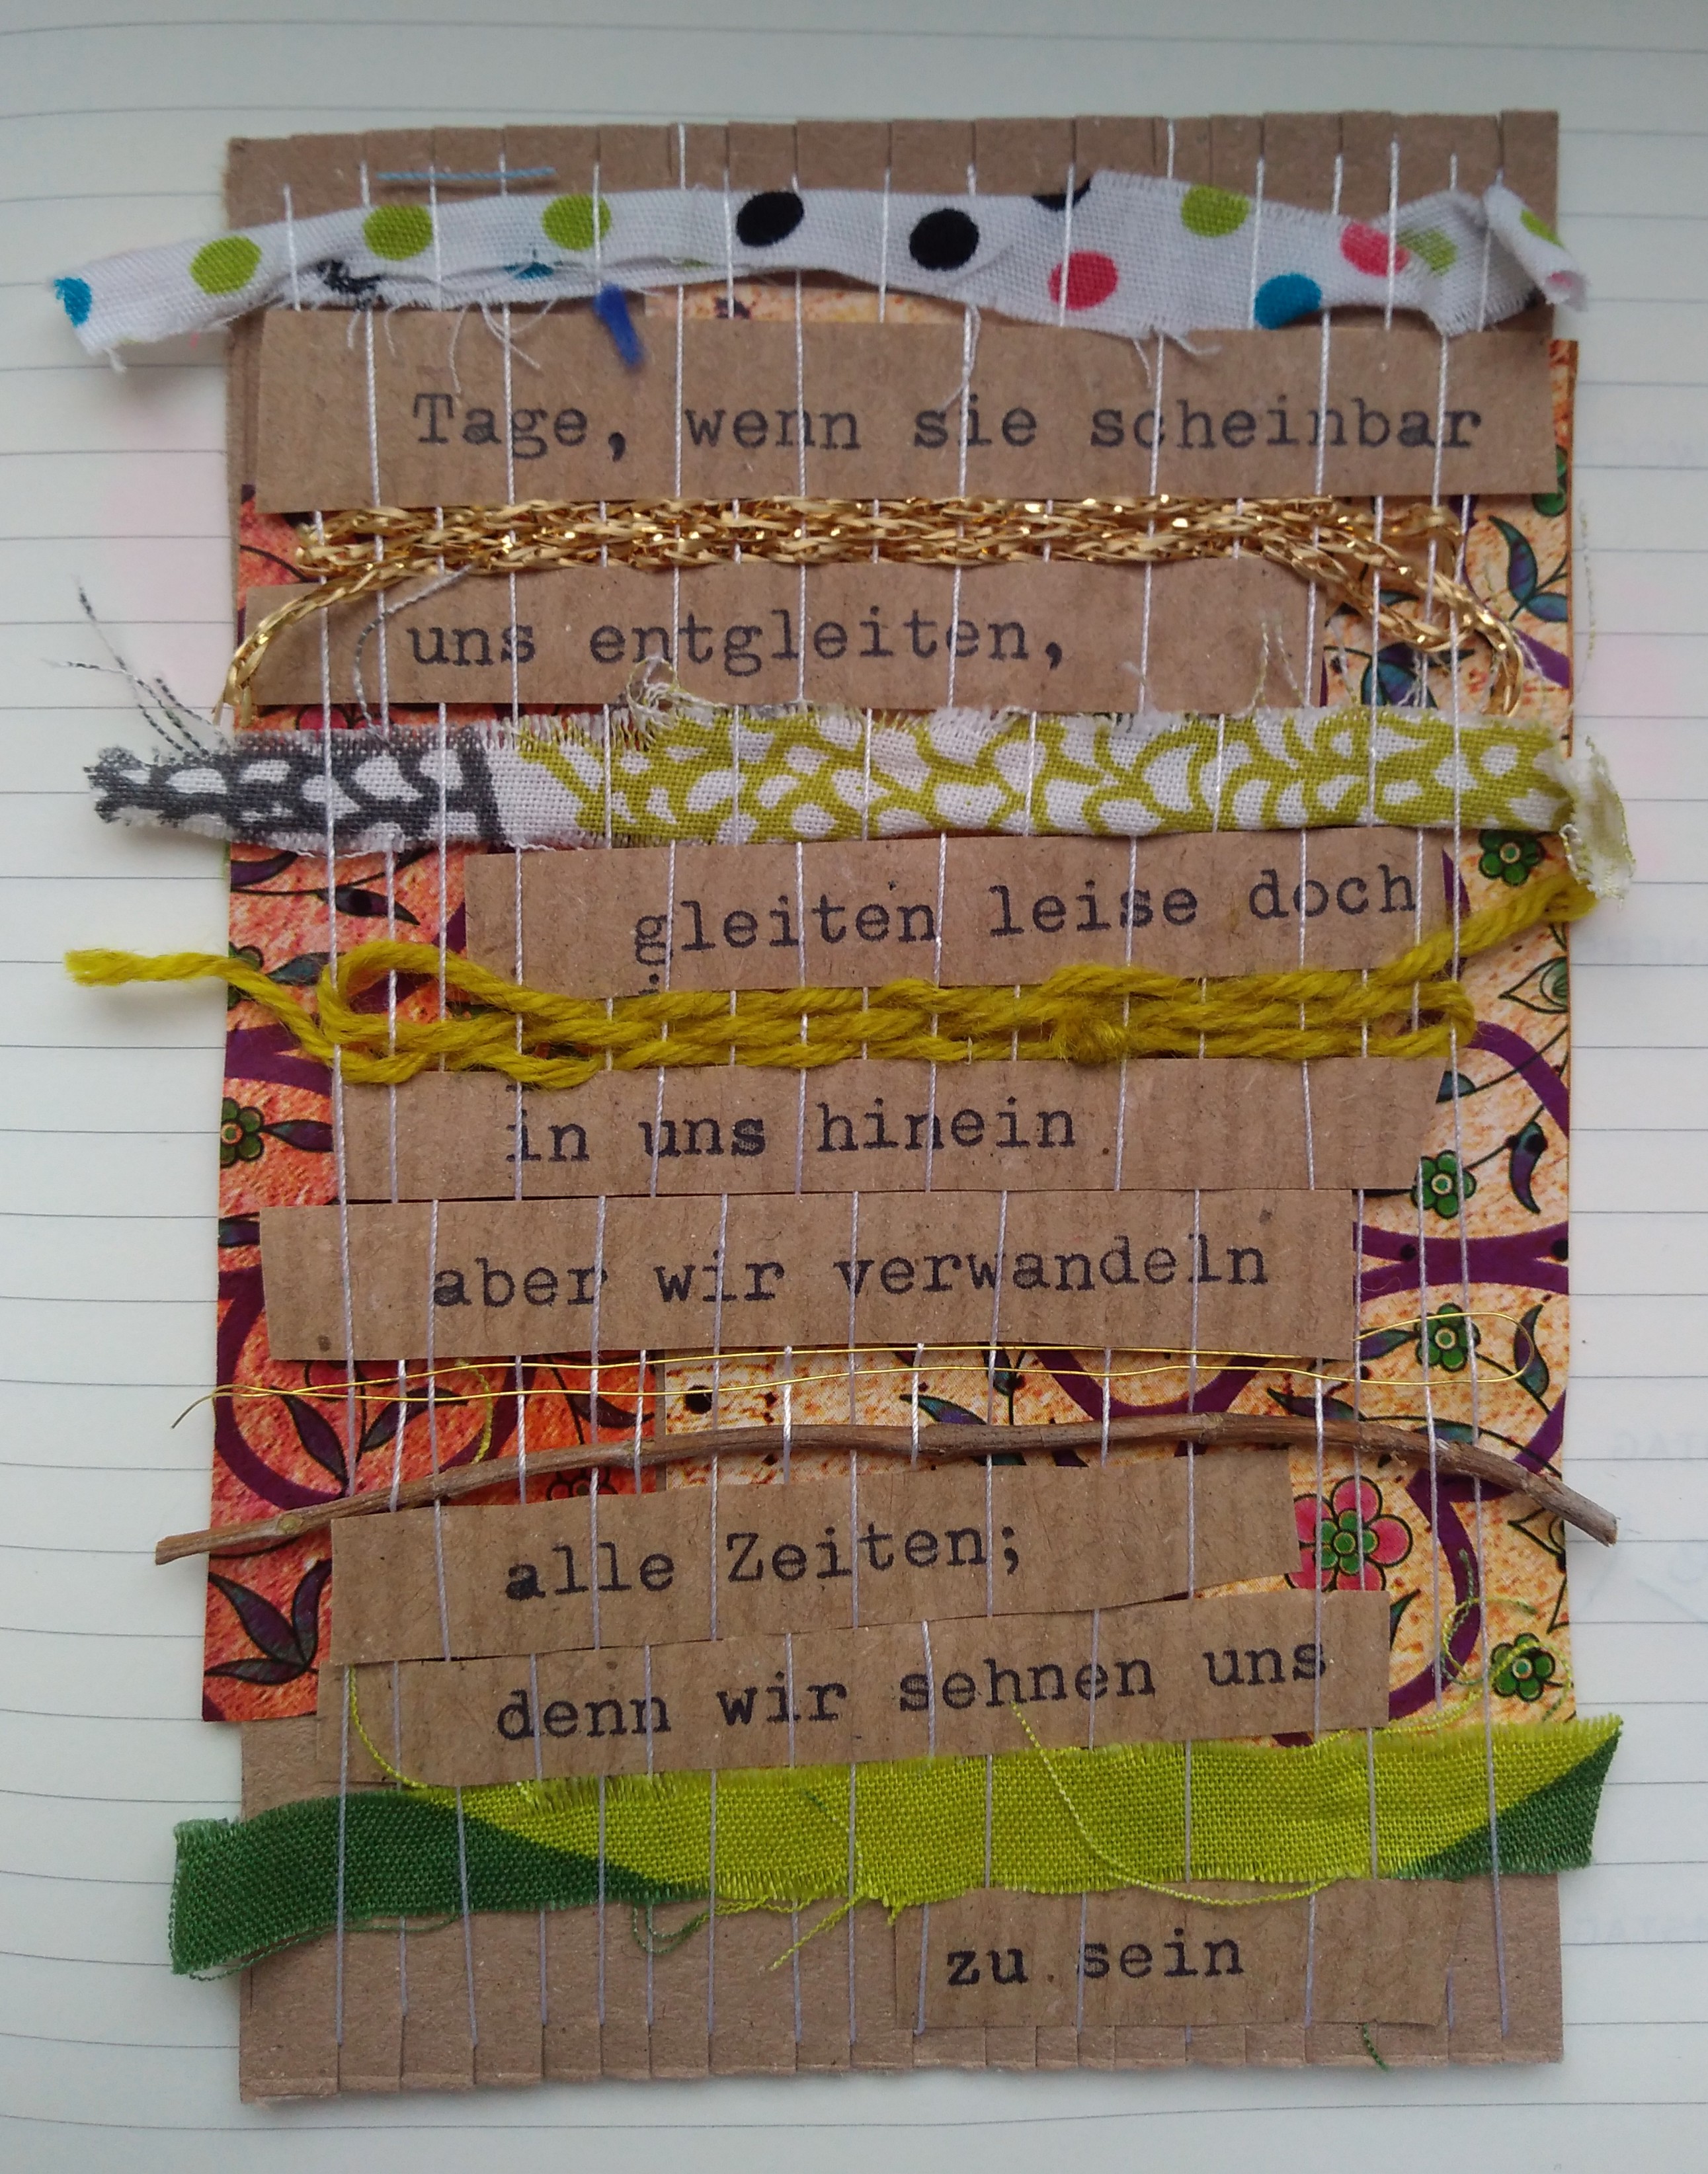 Tage, wenn sie scheinbar
uns entgleiten,
gleiten leise doch
in uns hinein
aber wir verwandeln
alle Zeiten;
denn wir sehnen uns
zu sein